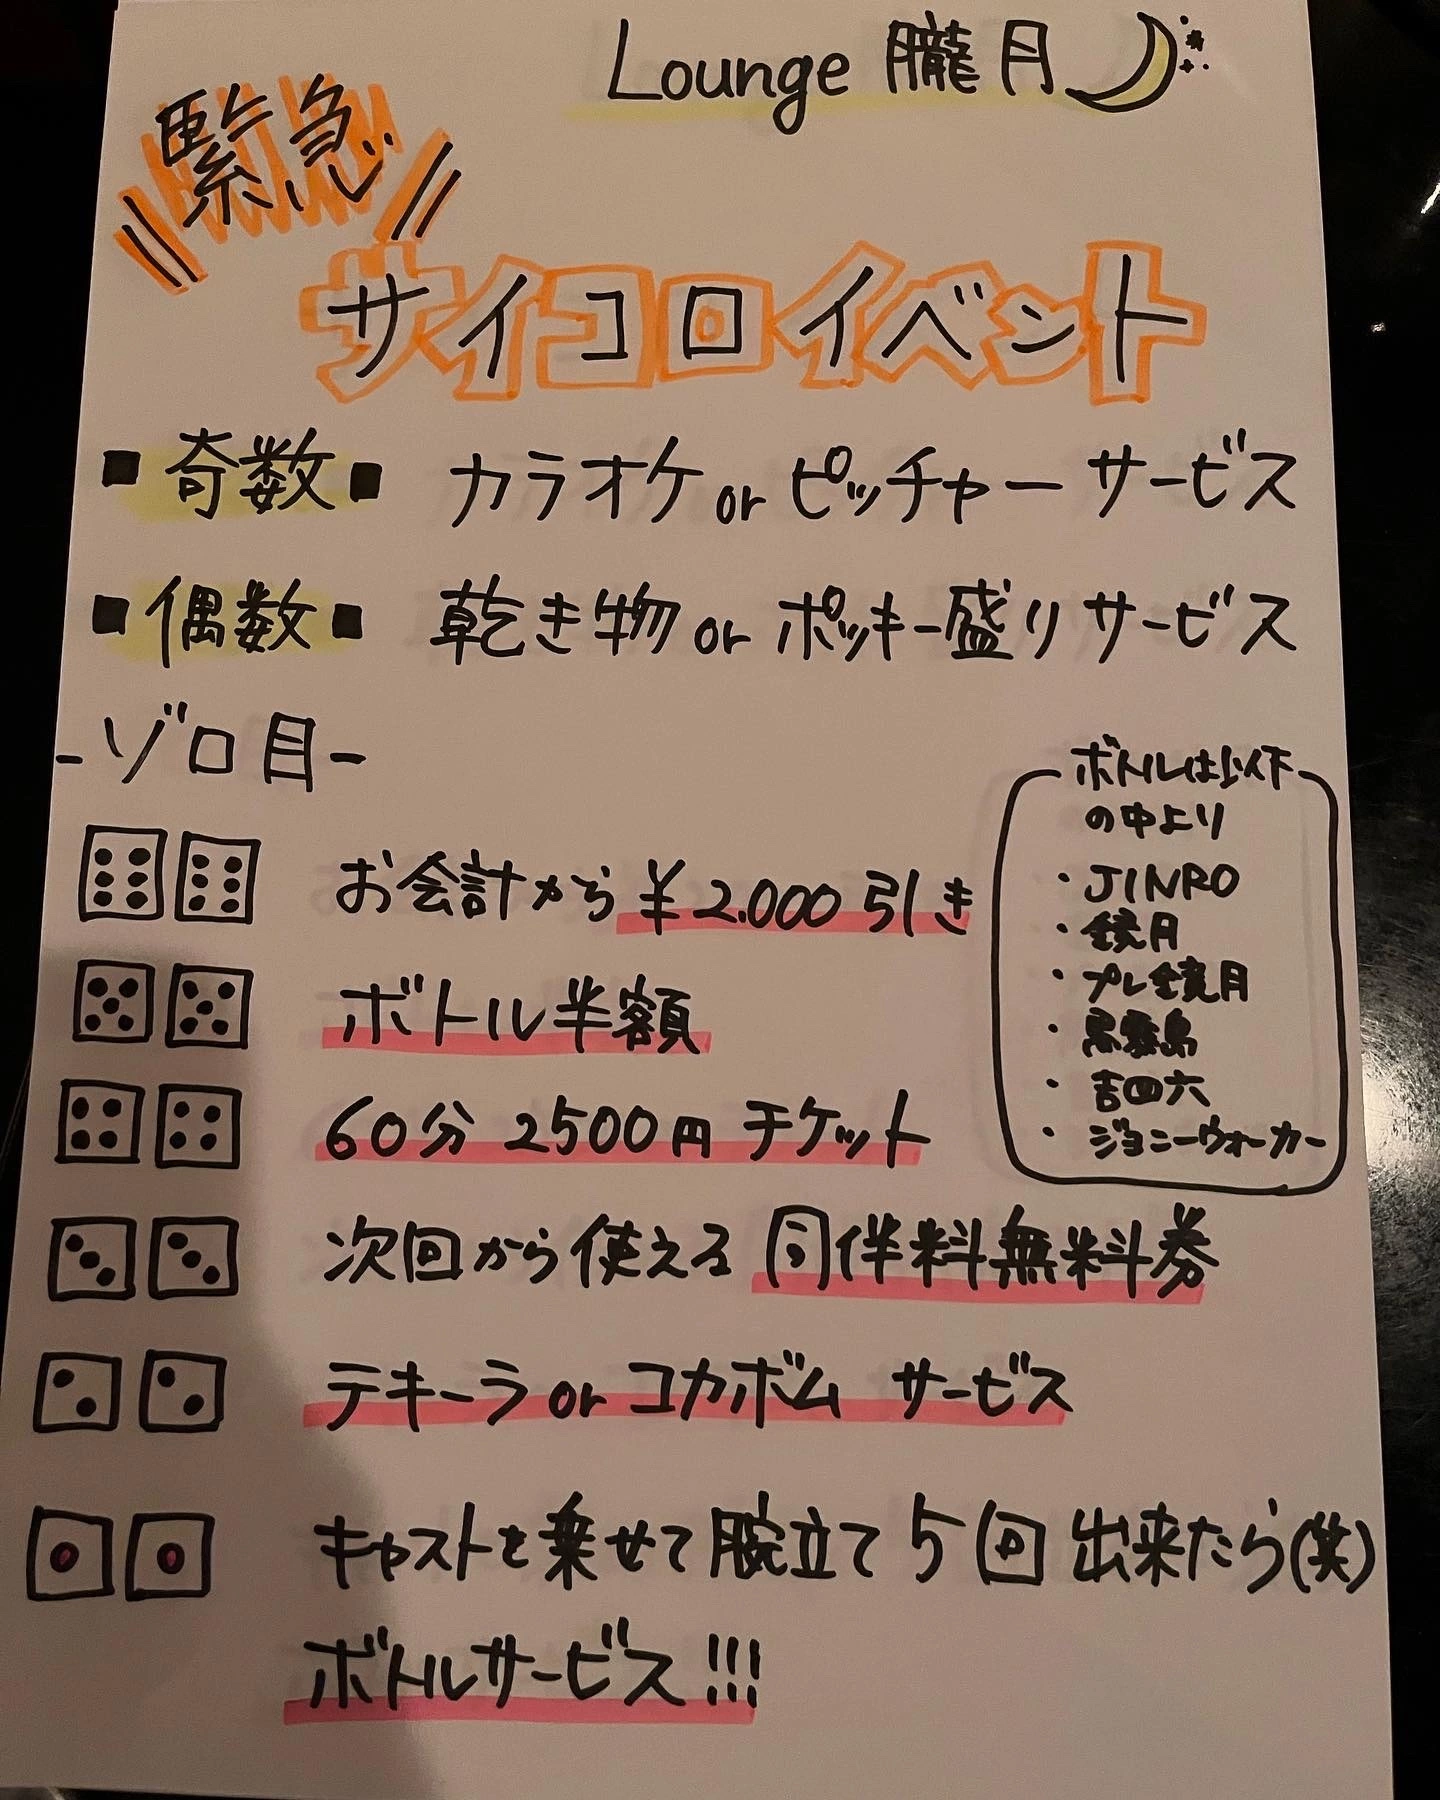 Lounge 朧月
緊急
サイコロイベント
■奇数■ カラオケorピッチャーサービス
■偶数■ 乾き物orポッキー盛りサービス
-ゾロ目-
お会計から¥2.000引き
ボトル半額
60分 2500円チケット
次回から使える同伴料無料券
テキーラorコカボム サービス
キャストを乗せて腕立て5回出来たら(笑)
ボトルサービス!!!
ボトルは以下
の中より
・JINRO
・鏡月
・プレ鏡月
・黒霧島
・吉四六
・ジョニーウォーカー